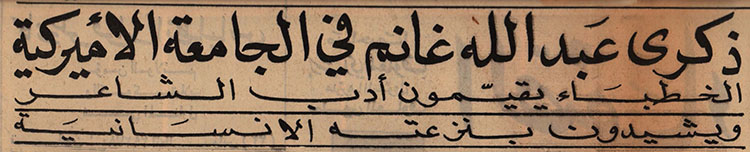 ذكرى عبد الله غانم في الجامعة الاميركية
الخطباء يقيّمون أدب الشاعر
ويشيدون بنزعته الانسانية